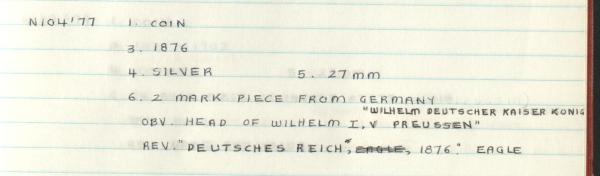 N104'77 1. COIN
3. 1876
4. SILVER 5. 27mm
6. 2 MARK PIECE FROM GERMANY
"WILHELM DEUTSCHER KAISER KONIG
OBV. HEAD OF WILHELM I, V PREUSSEN"
REV. "DEUTSCHES REICH", EAGLE, 1876." EAGLE